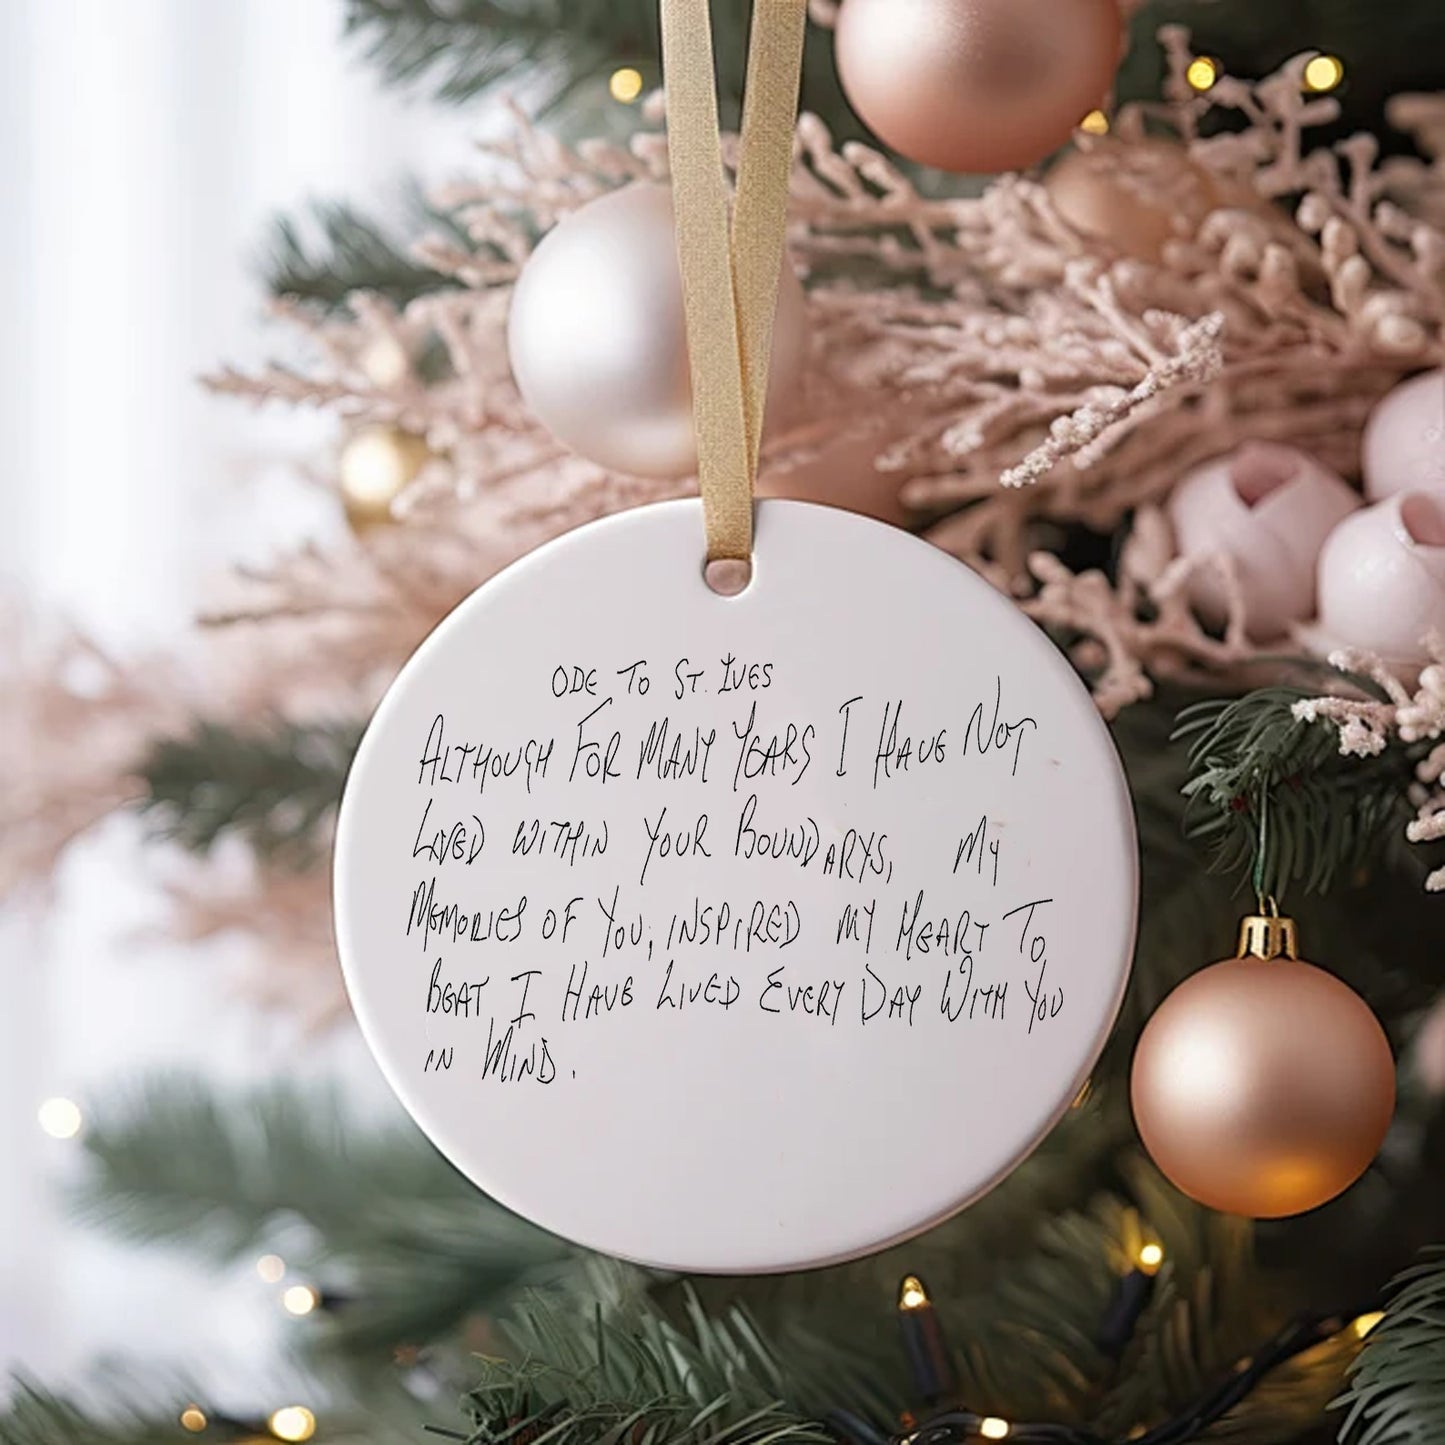 ODE TO ST. IVES
ALTHOUGH FOR MANY YEARS I HAVE NOT
LIVED WITHIN YOUR BOUNDARYS, MY
MEMORIES OF YOU, INSPIRED MY HEART TO
BEAT, I HAVE LIVED EVERY DAY WITH YOU
IN MIND.